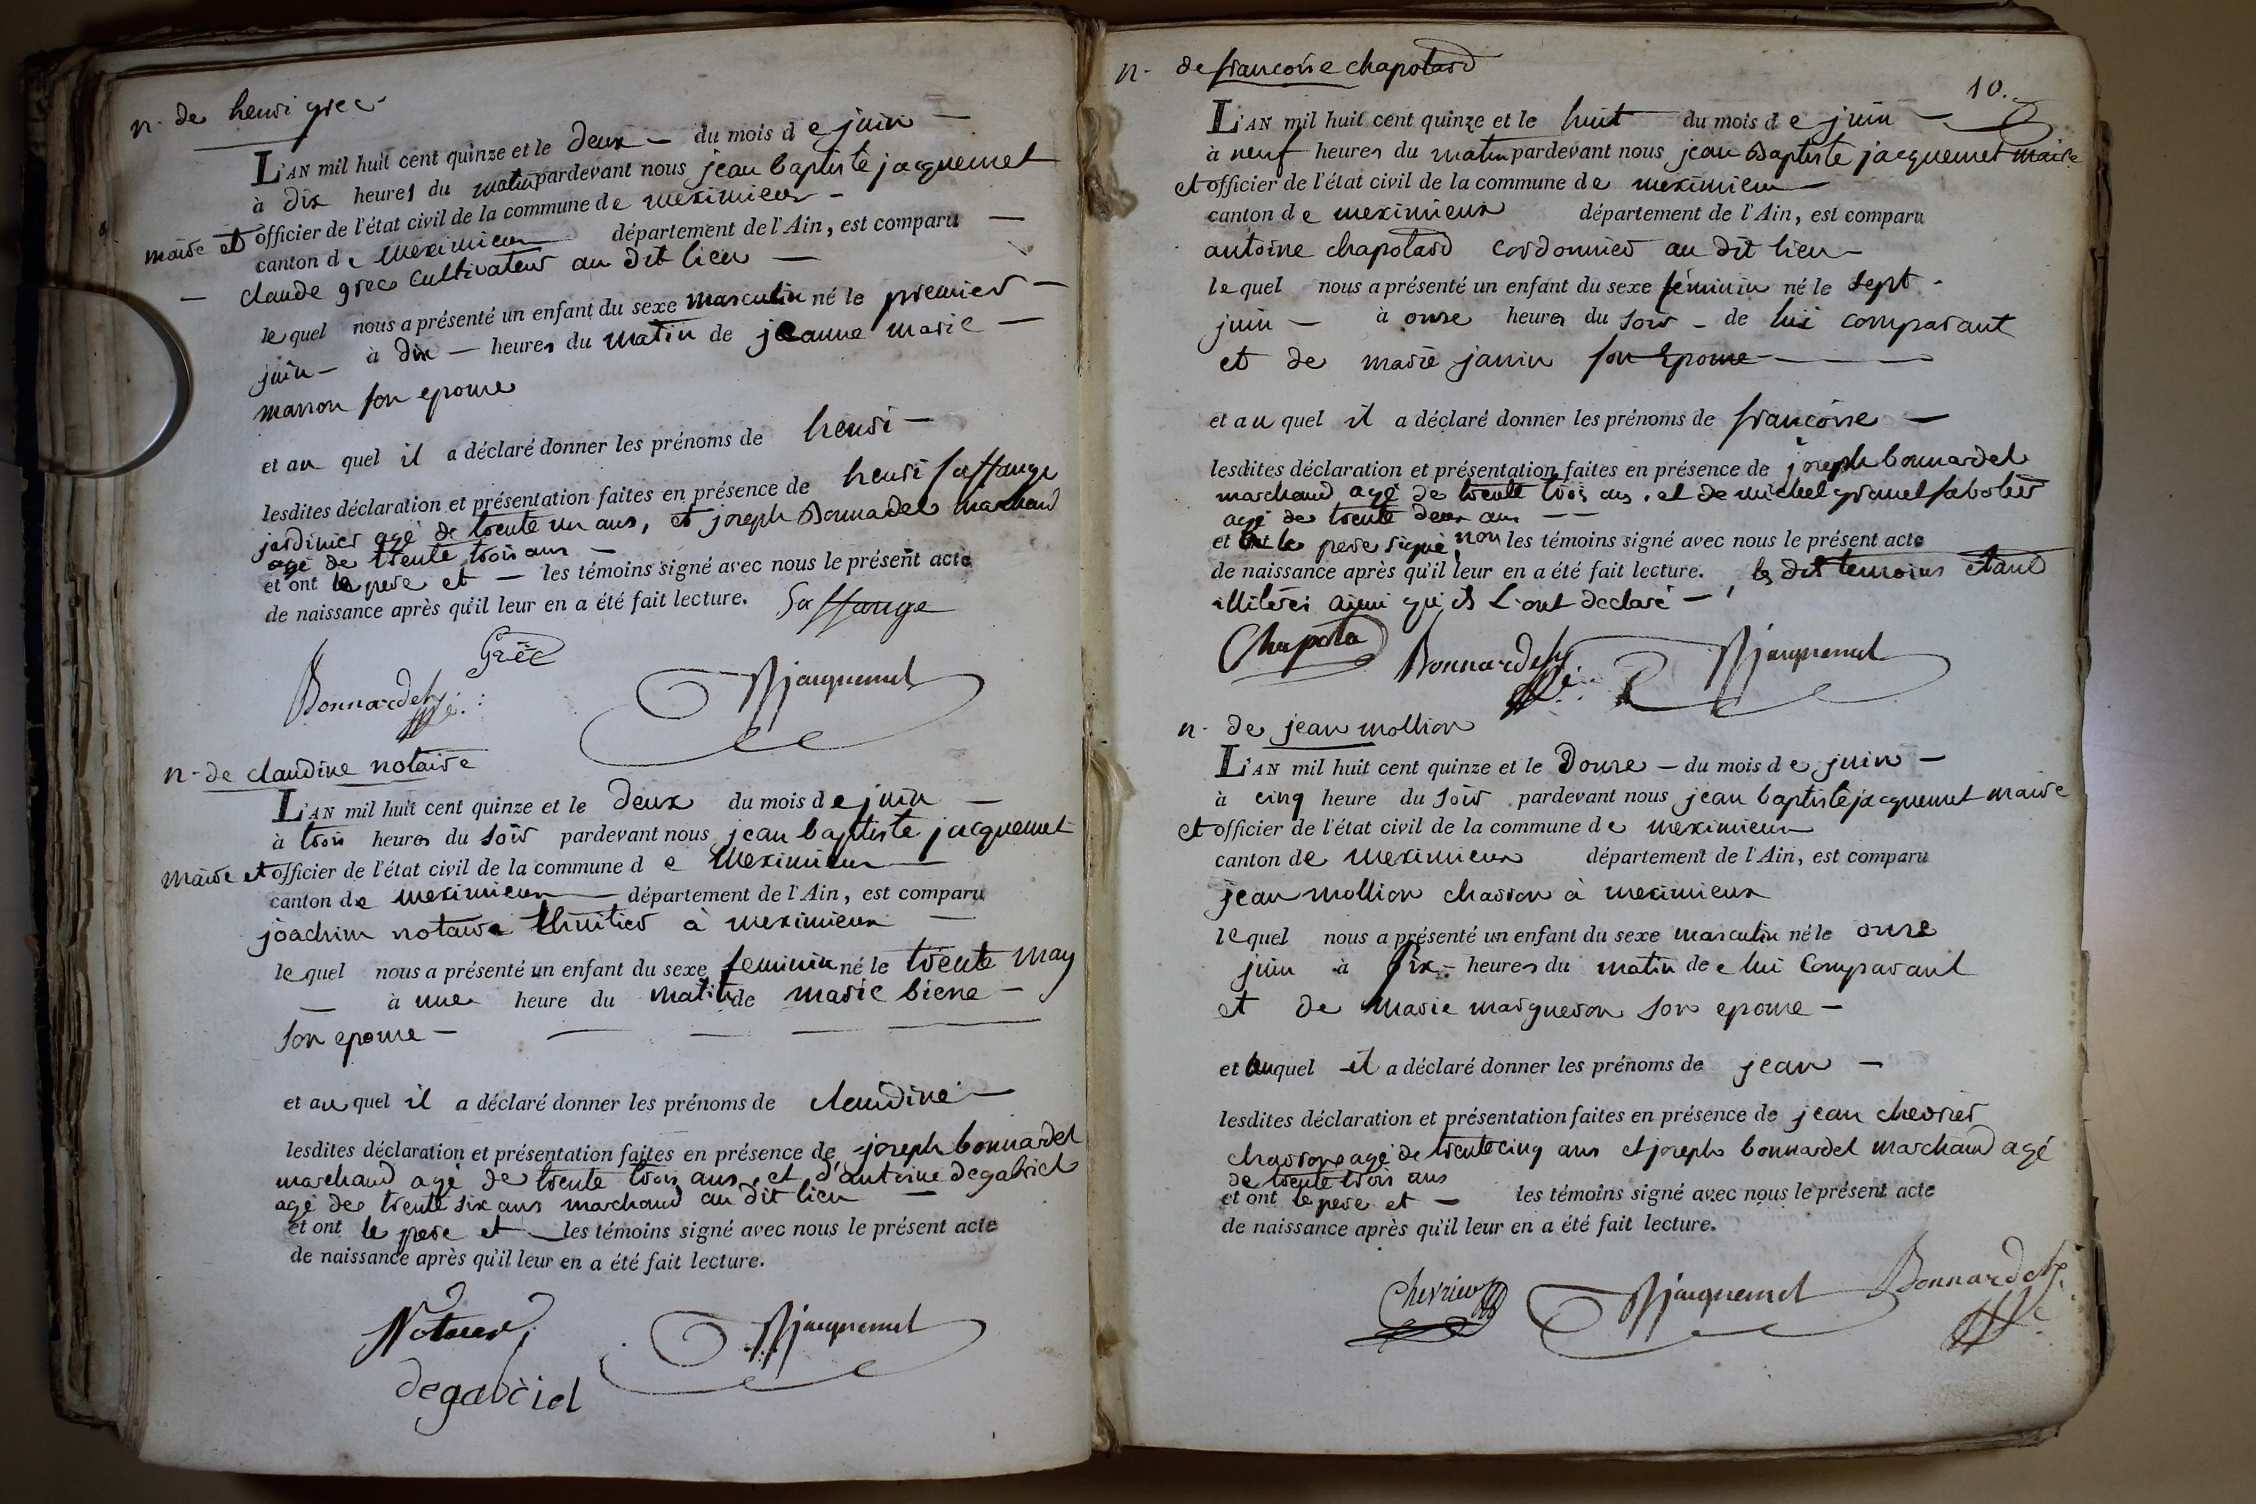 n. de henri grec
L'AN mil huit cent quinze et le deux — du mois de juin —
à dix heures du matin pardevant nous jean baptiste jacquemet
maire et officier de l'état civil de la commune de meximieux —
canton de Meximieux département de l'Ain, est comparu —
— claude grec cultivateur au dit lieu —
lequel nous a présenté un enfant du sexe masculin né le premier —
juin — à dix — heures du matin de jeanne marie —
son epouse
et au quel il a déclaré donner les prénoms de henri —
lesdites déclaration et présentation faites en présence de henri saffange
jardinier agé de trente un ans, et joseph Bonnardel marchand
agé de trente trois ans —
et ont le pere et — les témoins signé avec nous le présent acte
de naissance après qu'il leur en a été fait lecture. Saffange
Grèc
Bonnardel
Jacquemet
n. de claudine notaire
L'AN mil huit cent quinze et le deux du mois de juin —
à trois heures du soir pardevant nous jean baptiste jacquemet
maire et officier de l'état civil de la commune de Meximieux
canton de meximieux département de l'Ain, est comparu
joachim notaire à meximieux —
lequel nous a présenté un enfant du sexe feminin né le trente may
— à une heure du matin de marie —
son epouse —
et au quel il a déclaré donner les prénoms de claudine —
lesdites déclaration et présentation faites en présence de joseph bonnardel
marchand agé de trente trois ans, et d'antoine degabriel
agé de trente six ans marchand au dit lieu —
et ont le pere et — les témoins signé avec nous le présent acte
de naissance après qu'il leur en a été fait lecture.
Jacquemet
degabriel
n. de francoise chapotard
10.
L'AN mil huit cent quinze et le huit du mois de juin —
à neuf heures du matin pardevant nous jean Baptiste jacquemet maire
et officier de l'état civil de la commune de meximieux —
canton de meximieux département de l'Ain, est comparu
antoine chapotard cordonnier au dit lieu —
lequel nous a présenté un enfant du sexe féminin né le sept
juin — à onze heures du soir — de lui comparant
et de marie janin son Epouse —
et au quel il a déclaré donner les prénoms de francoise —
lesdites déclaration et présentation faites en présence de joseph bonnardel
marchand agé de trente trois ans, et de michel granet sabotier
agé de trente deux ans —
et le pere signé non les témoins signé avec nous le présent acte
de naissance après qu'il leur en a été fait lecture. le dit temoins etant
ainsi qu'ils l'ont declaré —
Chapota
Bonnardel
Jacquemet
n. de jean mollion
L'AN mil huit cent quinze et le Douze — du mois de juin —
à cinq heure du soir pardevant nous jean baptiste jacquemet maire
et officier de l'état civil de la commune de meximieux
canton de Meximieux département de l'Ain, est comparu
jean mollion charron à meximieux
lequel nous a présenté un enfant du sexe masculin né le onze
juin à heures du matin de lui Comparant
et de Marie margueron son epouse —
et auquel il a déclaré donner les prénoms de jean —
lesdites déclaration et présentation faites en présence de jean chevrier
charron agé de trente cinq ans et joseph bonnardel marchand agé
de trente trois ans
et ont le pere et — les témoins signé avec nous le présent acte
de naissance après qu'il leur en a été fait lecture.
Chevrier
Jacquemet
Bonnardel